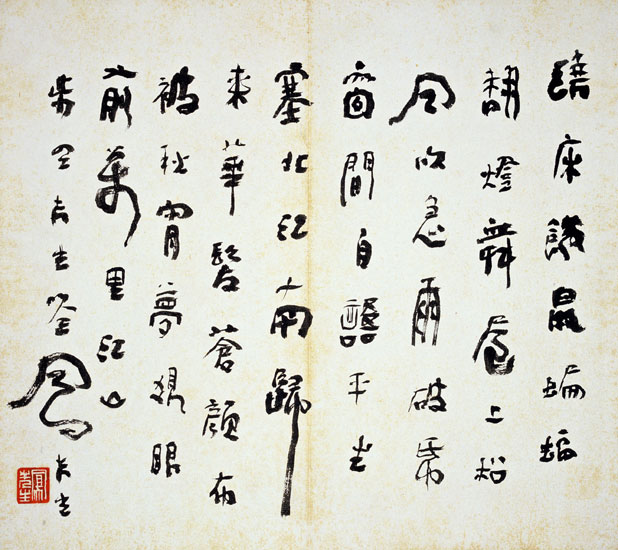 繞床饑鼠蝙蝠
翻燈舞屋上松
風吹急雨破紙
窗間自語平生
塞北江南歸
來華髮蒼顏布
被秋宵夢覺眼
前萬里江山
先生
風先生